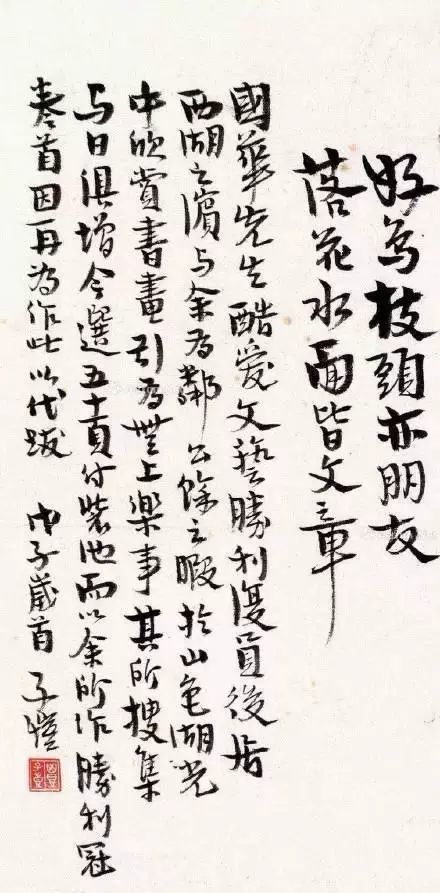 好鳥枝頭亦朋友
落花水面皆文章
國華先生酷愛文藝勝利復員後居
西湖之濱与余為鄰公餘之暇於山色湖光
中欣賞書畫引為無上樂事其所搜集
与日俱增今選五十頁付裝池而以余所作勝利冠
卷首因再為作此以代跋 戊子歲首 子愷